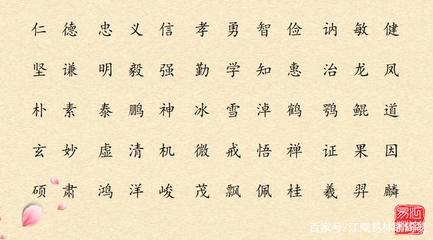 仁 德 忠 义 信 孝 勇 智 俭 讷 敏 健
坚 谦 明 毅 强 勤 学 知 惠 治 龙 凤
朴 素 泰 鹏 神 冰 雪 淖 鹤 鹗 鲲 道
玄 妙 虚 清 机 微 戒 悟 禅 证 果 因
硕 肃 鸿 洋 峻 茂 飘 佩 桂 羲 羿 麟